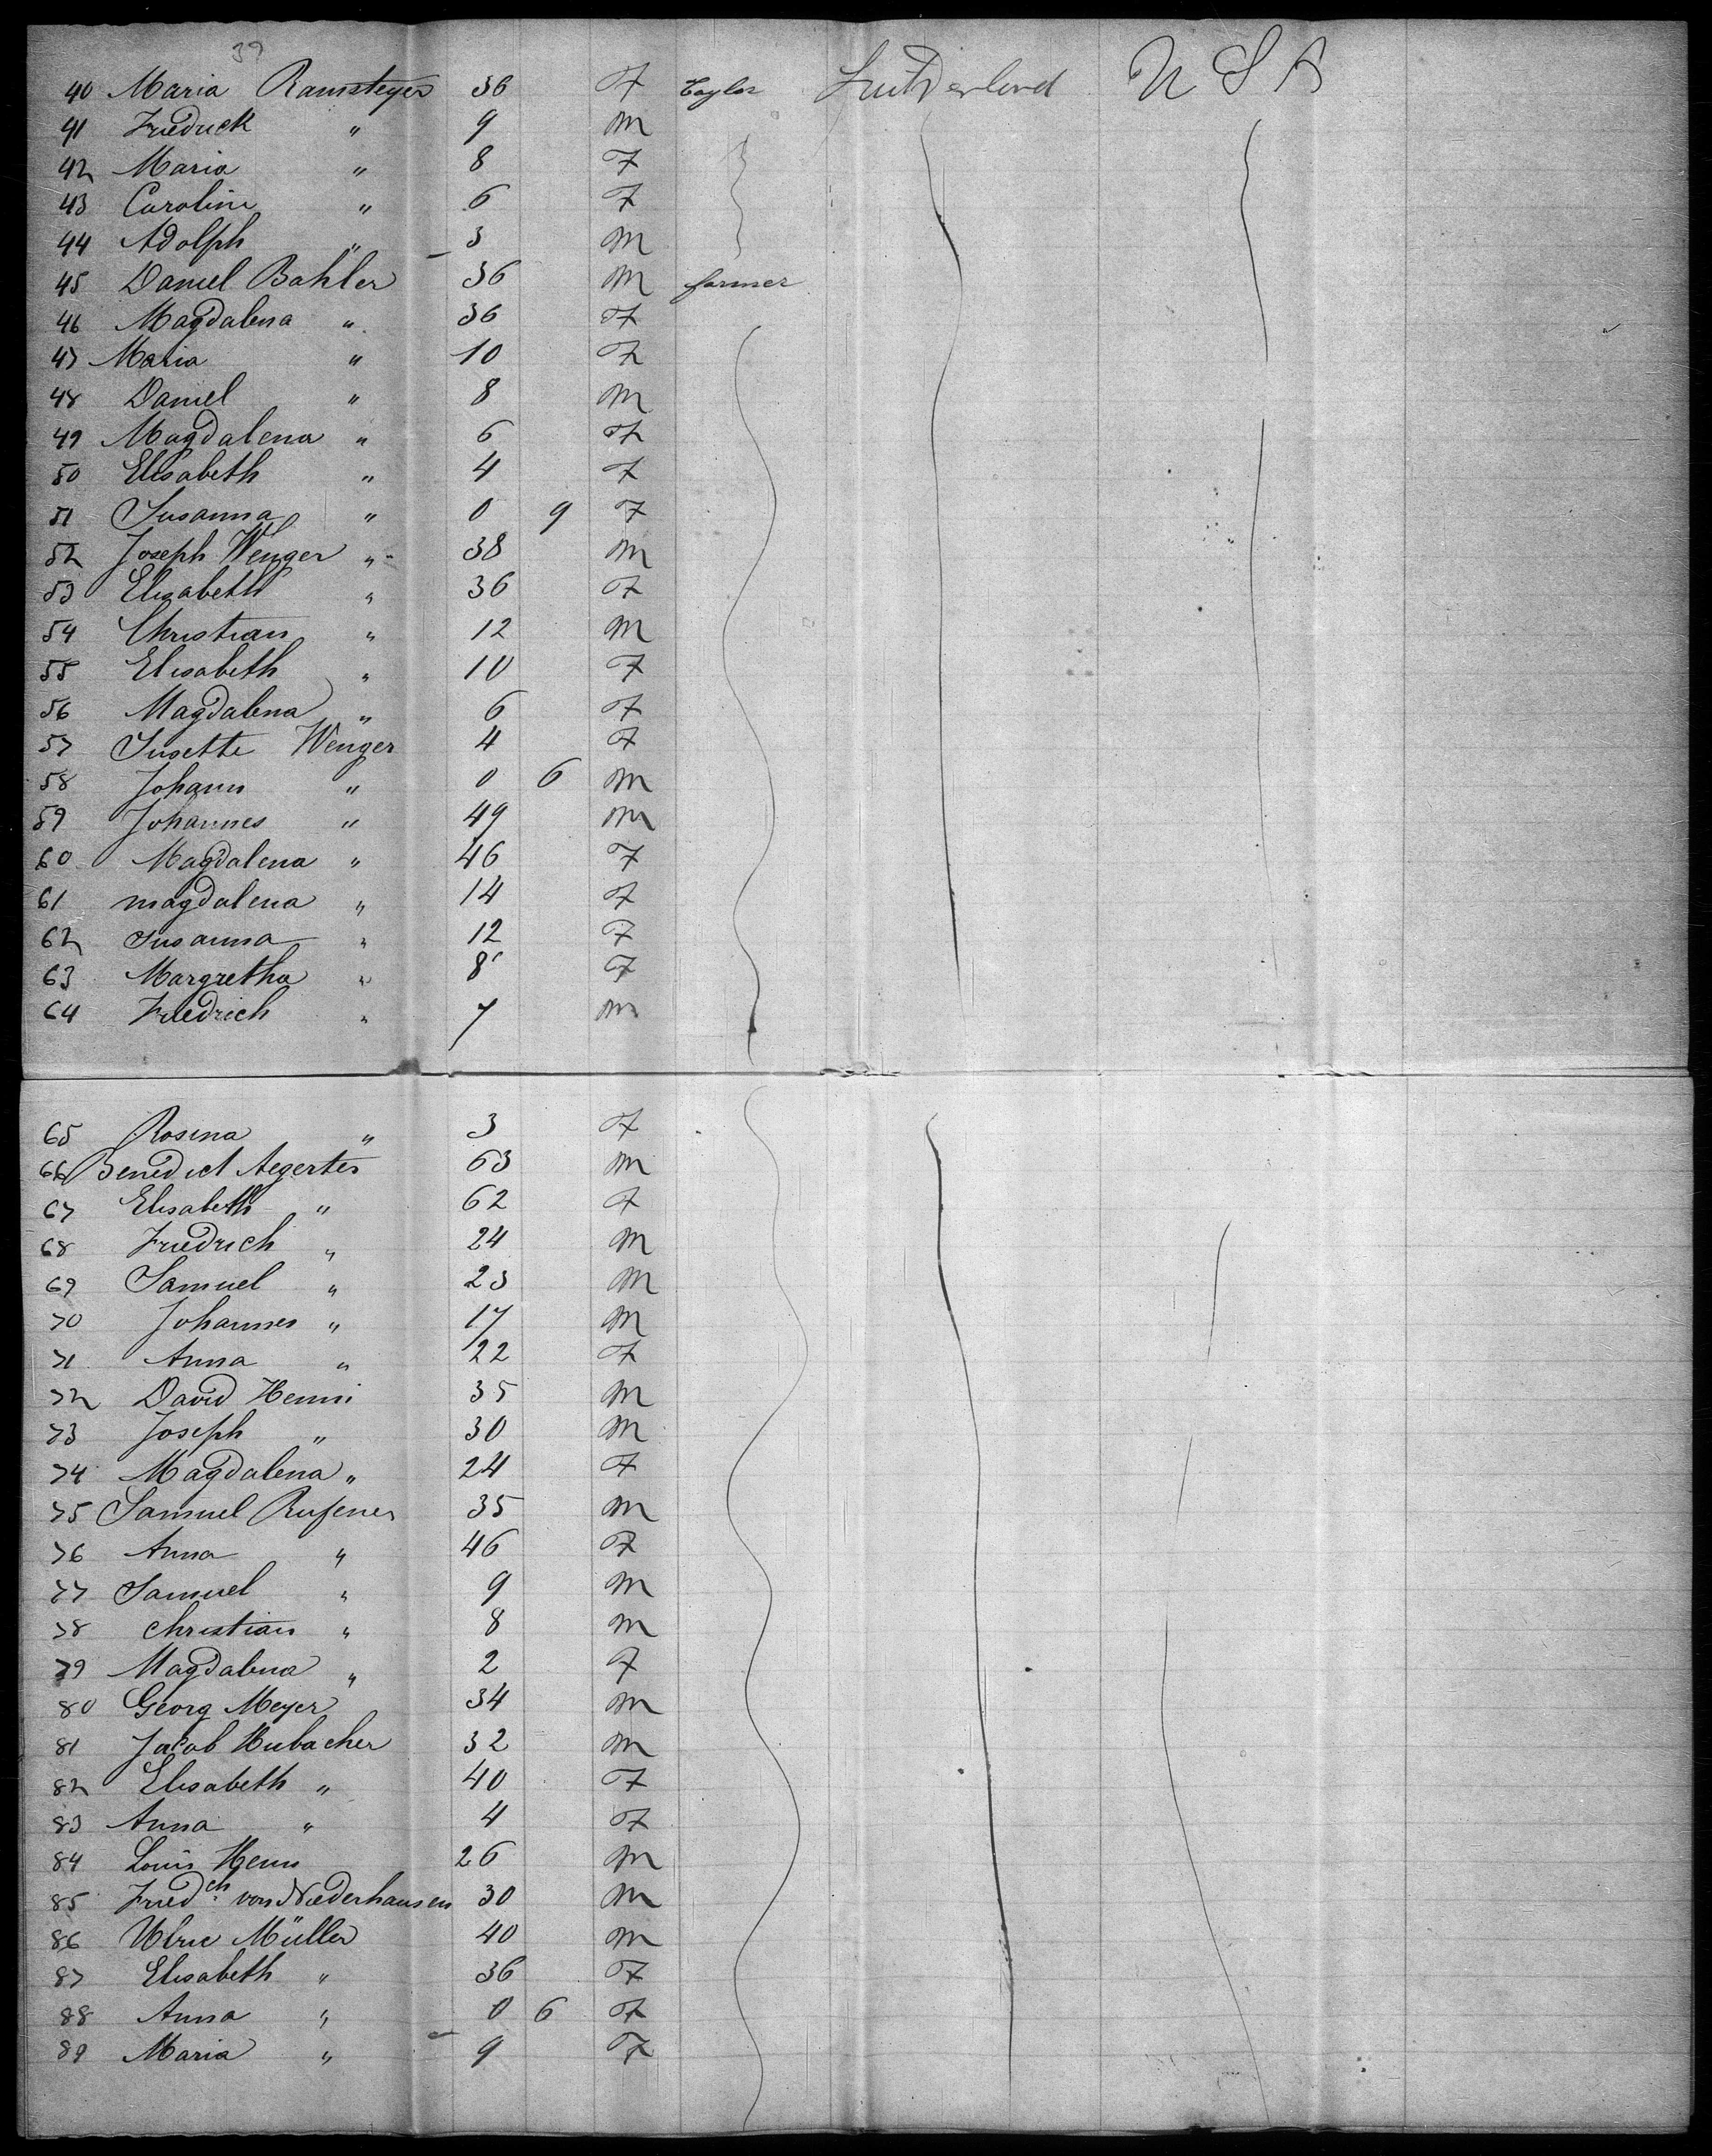 39
40 Maria Ramsteyer 36 F Taylor Switzerland U S A
41 Friedrick " 9 M
42 Maria " 8 F
43 Caroline " 6 F
44 Adolph " 3 M
45 Daniel Bahler 36 M farmer
46 Magdalena " 36 F
47 Maria " 10 F
48 Daniel " 8 M
49 Magdalena " 6 F
50 Elisabeth " 4 F
51 Susanna " 0 9 F
52 Joseph Wenger " 38 M
53 Elisabeth " 36 F
54 Christian " 12 M
55 Elisabeth " 10 F
56 Magdalena " 6 F
57 Susette Wenger 4 F
58 Johann " 0 6 M
59 Johannes " 49 M
60 Magdalena " 46 F
61 magdalena " 14 F
62 Susanna " 12 F
63 Margretha " 8 F
64 Friedrich " 7 M
65 Rosina " 3 F
66 Benedict Aegerter 63 M
67 Elisabeth " 62 F
68 Friedrich " 24 M
69 Samuel " 23 M
70 Johannes " 17 M
71 Anna " 22 F
72 David Henni 35 M
73 Joseph " 30 M
74 Magdalena " 24 F
75 Samuel Rufener 35 M
76 Anna " 46 F
77 Samuel " 9 M
78 Christian " 8 M
79 Magdalena " 2 F
80 Georg Meyer 34 M
81 Jacob Hubacher 32 M
82 Elisabeth " 40 F
83 Anna " 4 F
84 Louis Henn 26 M
85 Friedch. von Niederhausen 30 M
86 Ulric Müller 40 M
87 Elisabeth " 36 F
88 Anna " 0 6 F
89 Maria " 9 F